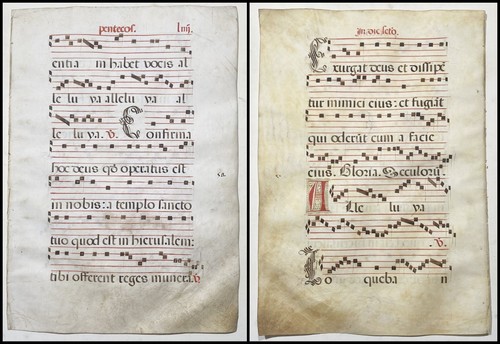 pentecos. liiij.
entia m habet vocis al
le lu ya allelu ya al
le lu ya. V. Confirma
hoc deus qd operatus est
in nobis: a templo sancto
tuo quod est in hierusalem:
tibi offerent reges munera. V
In die scto
Exurgat deus et dissipe
tur inimici eius: et fugiãt
qui oderũt eum a facie
eius. Gloria. Seculoru.
Alle lu ya
V.
Lo queba n